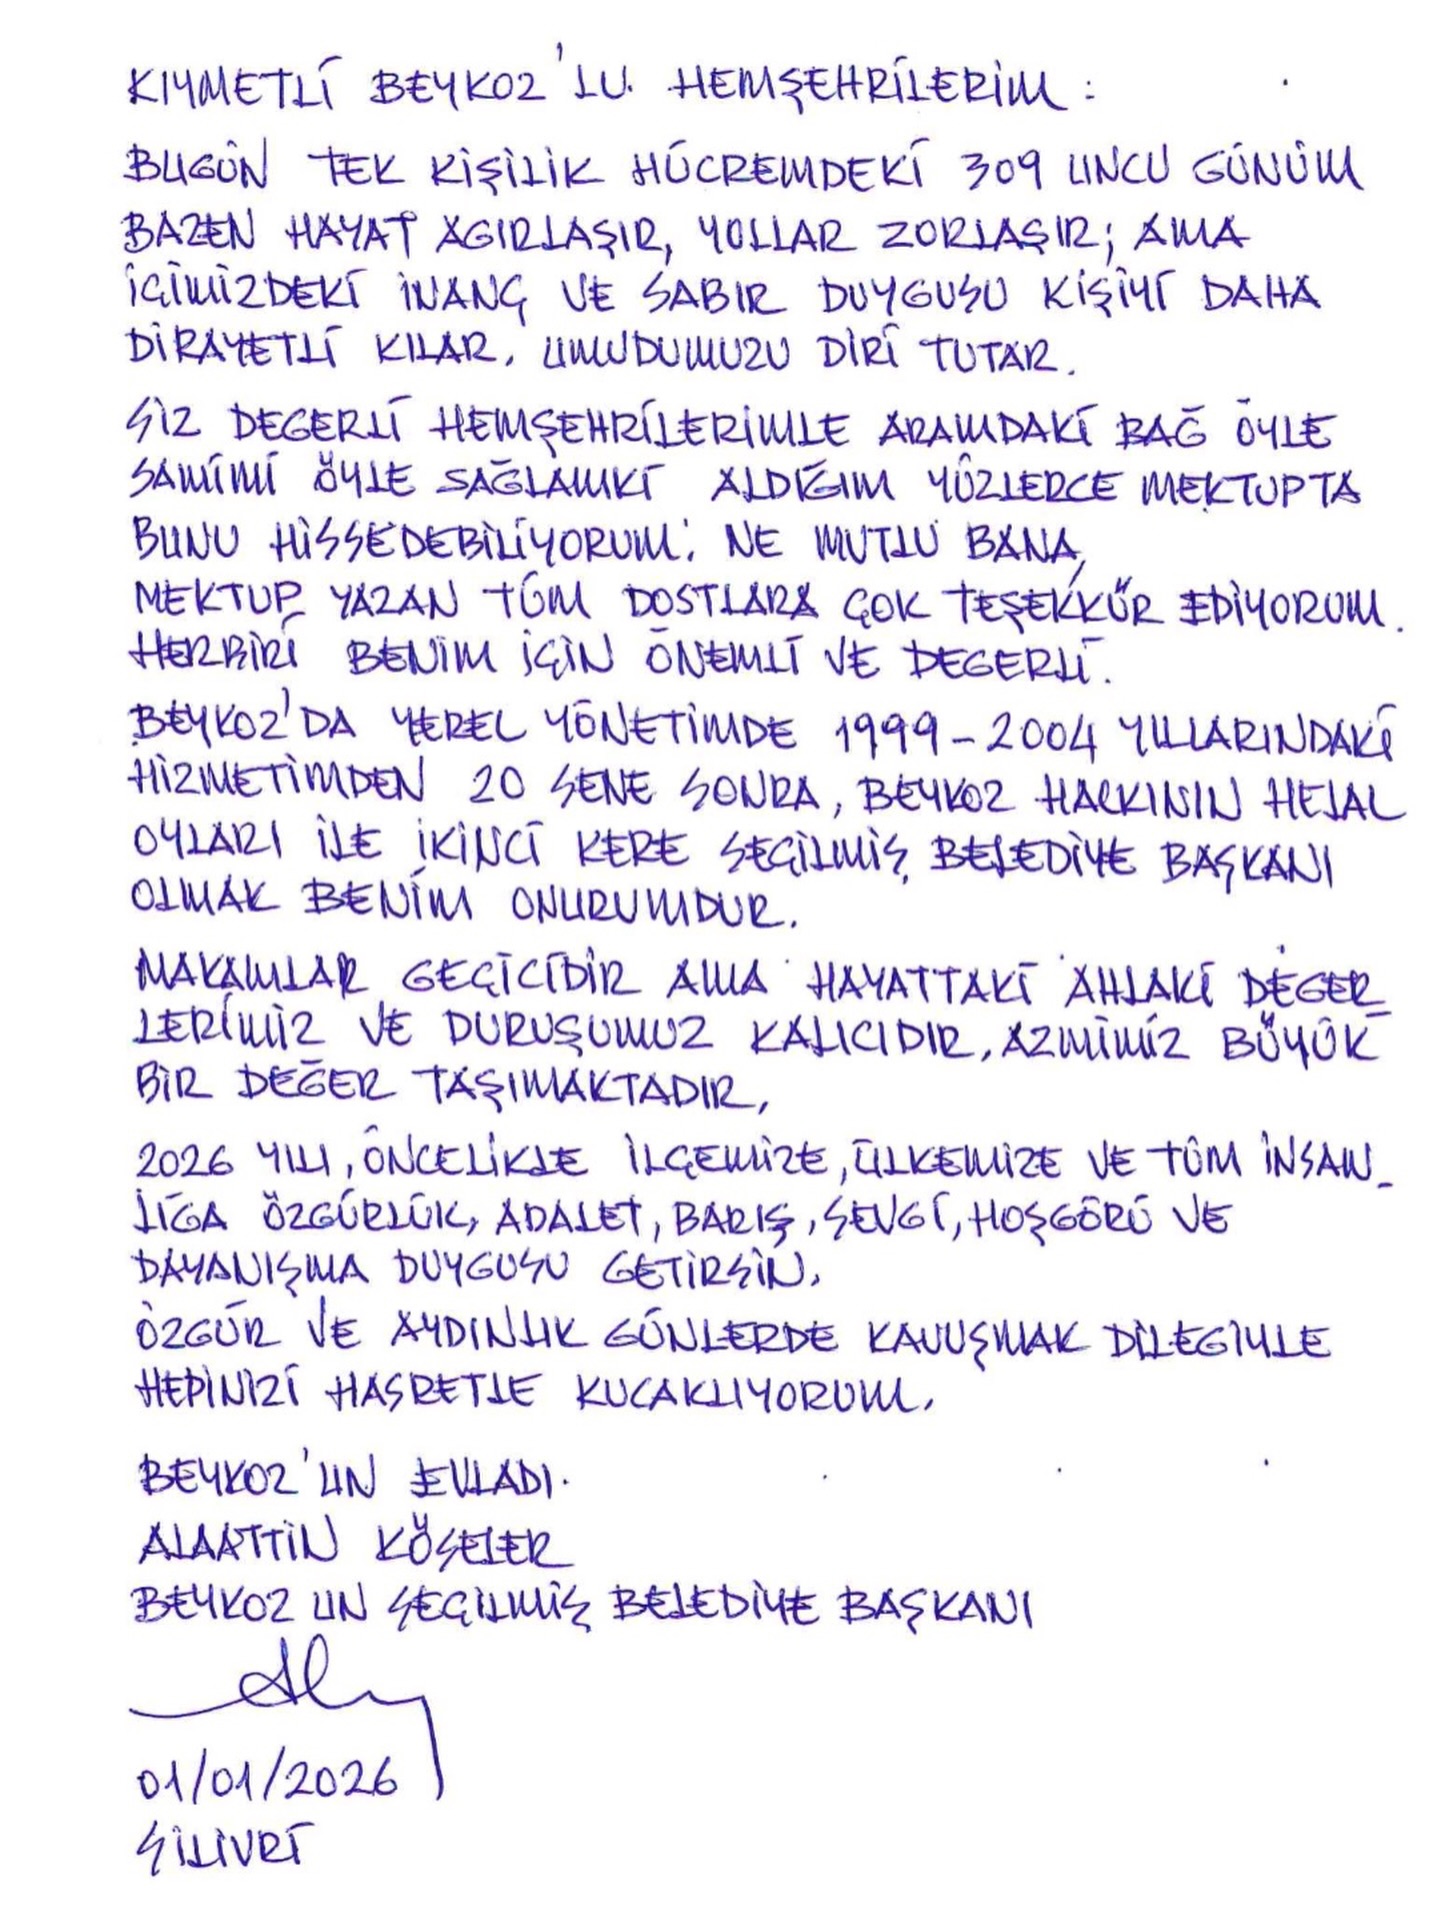 KIYMETLİ BEYKOZ'LU. HEMŞEHRİLERİM :
BUGÜN TEK KİŞİLİK HÜCREMDEKİ 309 UNCU GÜNÜM
BAZEN HAYAT AGIRLAŞIR, YOLLAR ZORLAŞIR; AMA
İÇİMİZDEKİ İNANÇ VE SABIR DUYGUSU KİŞİYİ DAHA
DİRAYETLİ KILAR. UMUDUMUZU DİRİ TUTAR.
SİZ DEGERLİ HEMŞEHRİLERİMLE ARAMDAKİ BAĞ ÖYLE
SAMİMİ ÖYLE SAĞLAMKİ ALDIĞIM YÜZLERCE MEKTUPTA
BUNU HİSSEDEBİLİYORUM. NE MUTLU BANA,
MEKTUP YAZAN TÜM DOSTLARA ÇOK TEŞEKKÜR EDİYORUM.
HERBİRİ BENİM İÇİN ÖNEMLİ VE DEGERLİ.
BEYKOZ'DA YEREL YÖNETİMDE 1999-2004 YILLARINDAKİ
HİZMETİMDEN 20 SENE SONRA, BEYKOZ HALKININ HELAL
OYLARI İLE İKİNCİ KERE SEÇİLMİŞ BELEDİYE BAŞKANI
OLMAK BENİM ONURUMDUR.
MAKAMLAR GEÇİCİDİR AMA HAYATTAKİ AHLAKİ DEGER_
LERİMİZ VE DURUŞUMUZ KALICIDIR. AZMİMİZ BÜYÜK
BİR DEĞER TAŞIMAKTADIR,
2026 YILI, ÖNCELİKLE İLÇEMİZE, ÜLKEMİZE VE TÜM İNSAN_
LIGA ÖZGÜRLÜK, ADALET, BARIŞ, SEVGİ, HOŞGÖRÜ VE
DAYANIŞMA DUYGUSU GETİRSİN.
ÖZGÜR VE AYDINLIK GÜNLERDE KAVUŞMAK DİLEGİYLE
HEPİNİZİ HASRETLE KUCAKLIYORUM.
BEYKOZ'UN EVLADI.
ALAATTİN KÖSELER
BEYKOZ UN SEÇİLMİŞ BELEDİYE BAŞKANI
01/01/2026
SİLİVRİ